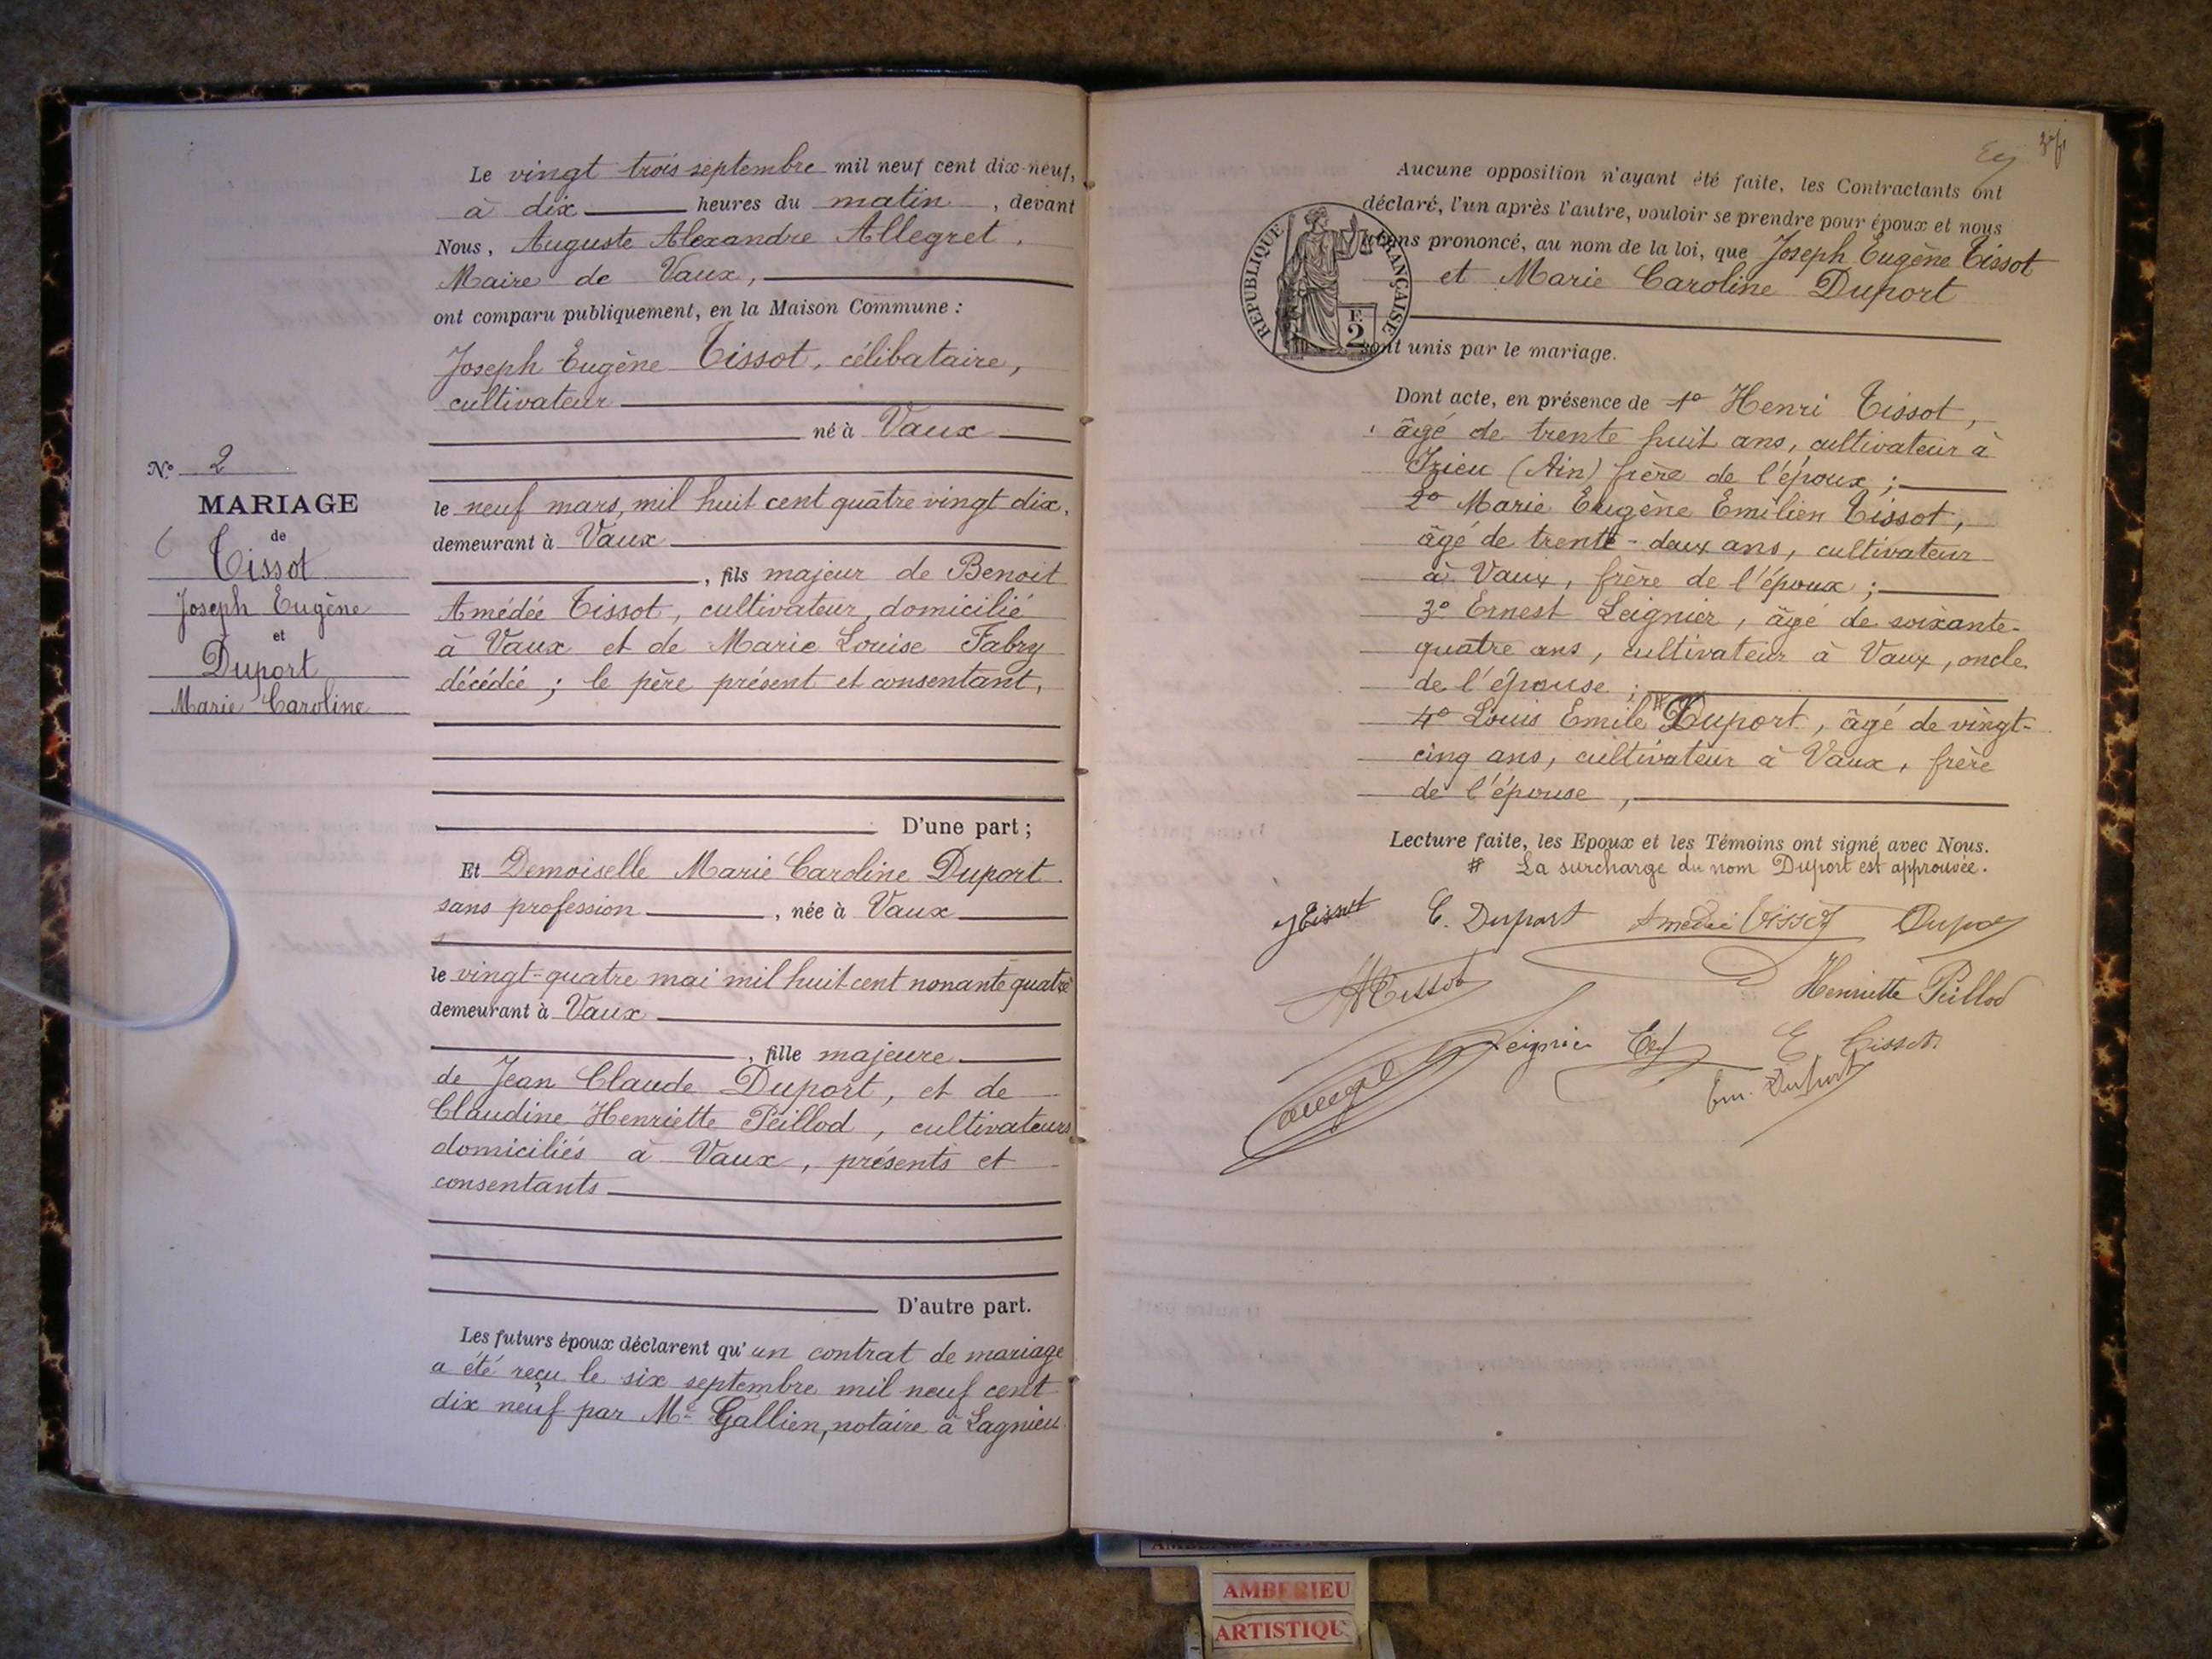 N° 2
MARIAGE
de
Tissot
Joseph Eugène
et
Duport
Marie Caroline
Le vingt trois septembre mil neuf cent dix-neuf,
à dix heures du matin, devant
Nous, Auguste Alexandre Allegret,
Maire de Vaux,
ont comparu publiquement, en la Maison Commune :
Joseph Eugène Tissot, célibataire,
cultivateur
né à Vaux
le neuf mars, mil huit cent quatre vingt dix,
demeurant à Vaux
, fils majeur de Benoit
Amédée Tissot, cultivateur, domicilié
à Vaux et de Marie Louise Fabry
décédée ; le père présent et consentant,
D'une part ;
Et Demoiselle Marie Caroline Duport
sans profession, née à Vaux
le vingt-quatre mai mil huit cent nonante quatre
demeurant à Vaux
, fille majeure
de Jean Claude Duport, et de
Claudine Henriette Peillod, cultivateurs
domiciliés à Vaux, présents et
consentants
D'autre part.
Les futurs époux déclarent qu'un contrat de mariage
a été reçu le six septembre mil neuf cent
dix neuf par Me Gallien, notaire à Lagnieu
Aucune opposition n'ayant été faite, les Contractants ont
déclaré, l'un après l'autre, vouloir se prendre pour époux et nous
avons prononcé, au nom de la loi, que Joseph Eugène Tissot
et Marie Caroline Duport
sont unis par le mariage.
RÉPUBLIQUE FRANÇAISE
F.
2
Dont acte, en présence de 1° Henri Tissot,
âgé de trente huit ans, cultivateur à
Izieu (Ain) frère de l'époux ;
2° Marie Eugène Emilien Tissot,
âgé de trente-deux ans, cultivateur
à Vaux, frère de l'époux ;
3° Ernest Leignier, âgé de soixante-
quatre ans, cultivateur à Vaux, oncle
de l'épouse ;
4° Louis Emile # Duport, âgé de vingt-
cinq ans, cultivateur à Vaux, frère
de l'épouse,
Lecture faite, les Epoux et les Témoins ont signé avec Nous.
# La surcharge du nom Duport est approuvée.
JETissot C. Duport Amédée Tissot Dupor
HTissot Henriette Peillod
Leignier E. Tissot
Em. Duport
AMBERIEU
ARTISTIQU